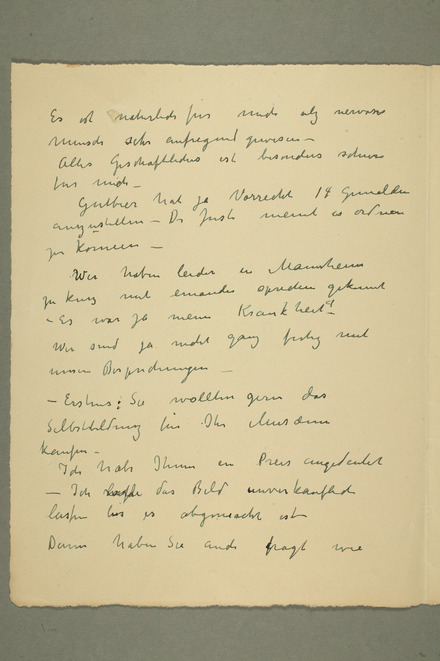 Es ist natürlich für mich als nervöser
Mensch sehr aufregend gewesen –
Alles Geschäftliches ist besonders schwer
für mich –
Gutbier hat ja Vorrecht 14 Gemälde
auszustellen – Dr Justi meint es ordnen
zu können —
Wir haben leider in Mannheim
zu kurz mit einander sprechen gekonnt
– Es war ja meine Krankheit
Wir sind ja nicht ganz fertig mit
unsern Besprechungen –
– Erstens: Sie wollten gern das
Selbstbildnis für Ihr Museum
kaufen –
Ich habe Ihnen ein Preis angedeutet
– Ich das Bild unverkauflich
lassen bis es abgemacht ist
Dann haben Sie auch fragt wie